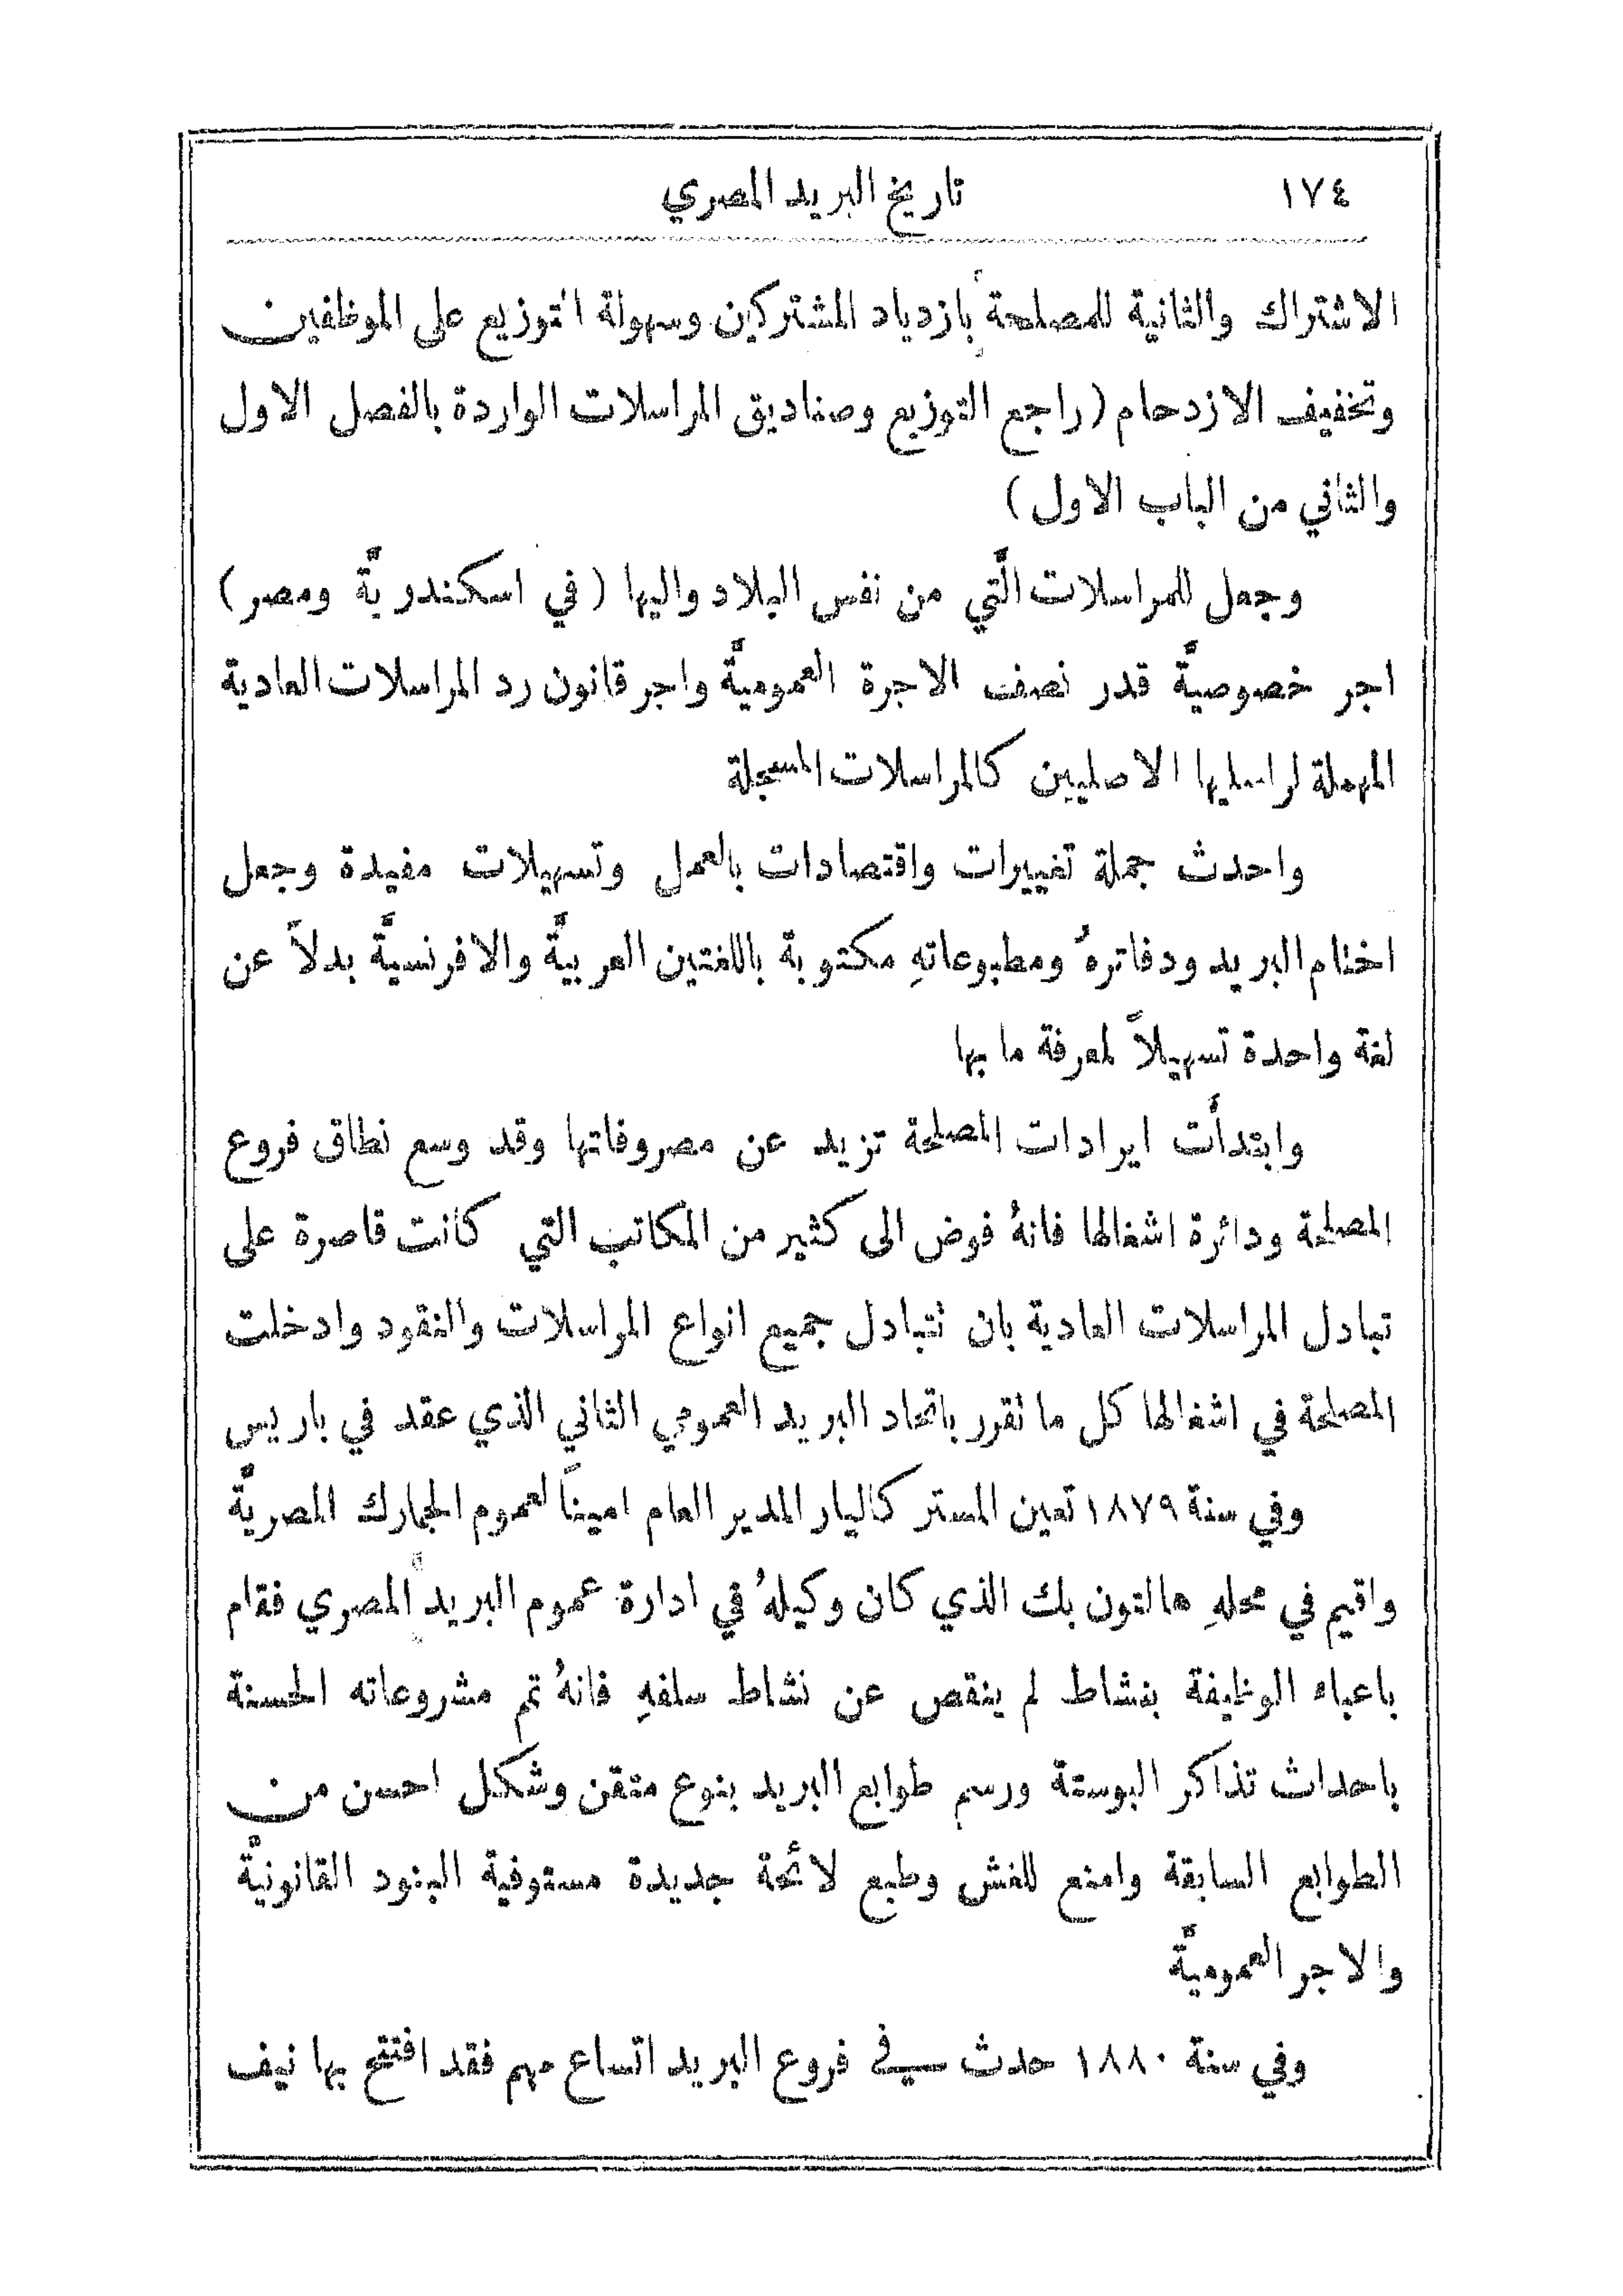 ١٧٤ تاريخ البريد المصري
الاشتراك والثانية للمصلحة بازدياد المشتركين وسهولة التوزيع على الموظفين
وتخفيف الازدحام (راجع التوزيع وصناديق المراسلات الواردة بالفصل الاول
والثاني من الباب الاول)
وجعل للمراسلات الَّتي من نفس البلاد واليها (في اسكندريَّة ومصر)
اجر خصوصيَّة قدر نصف الاجرة العموميَّة واجر قانون رد المراسلات العادية
المهملة لراسليها الاصليين كالمراسلات المسجلة
واحدث جملة تغييرات واقتصادات بالعمل وتسهيلات مفيدة وجعل
اختام البريد ودفاترهُ ومطبوعاتهِ مكتوبة باللغتين العربيَّة والافرنسيَّة بدلاً عن
لغة واحدة تسهيلاً لمعرفة ما بها
وابتدأَت ايرادات المصلحة تزيد عن مصروفاتها وقد وسع نطاق فروع
المصلحة ودائرة اشغالها فانهُ فوض الى كثير من المكاتب التي كانت قاصرة على
تبادل المراسلات العادية بان تتبادل جميع انواع المراسلات والنقود وادخلت
المصلحة في اشغالها كل ما تقرر باتحاد البريد العمومي الثاني الذي عقد في باريس
وفي سنة ١٨٧٩ تعين المستر كاليار المدير العام اميناً لعموم الجمارك المصريَّة
واقيم في محلهِ هالتون بك الذي كان وكيلهُ في ادارة عموم البريد المصري فقام
باعباء الوظيفة بنشاط لم ينقص عن نشاط سلفهِ فانهُ تم مشروعاته الحسنة
باحداث تذاكر البوستة ورسم طوابع البريد بنوع متقن وشكل احسن من
الطوابع السابقة وامنع للغش وطبع لائحة جديدة مستوفية البنود القانونيَّة
والاجر العموميَّة
وفي سنة ١٨٨٠ حدث في فروع البريد اتساع مهم فقد افتتح بها نيف